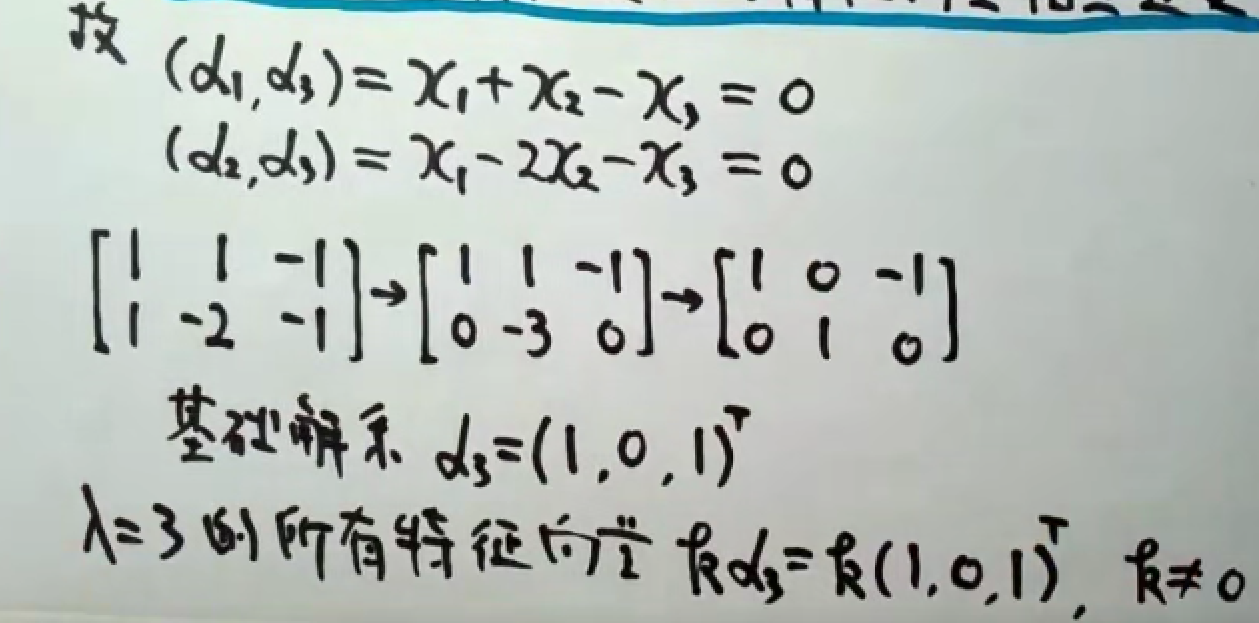 故 (α₁,α₃)=x₁+x₂-x₃=0
(α₂,α₃)=x₁-2x₂-x₃=0
[1 1 -1; 1 -2 -1]→[1 1 -1; 0 -3 0]→[1 0 -1; 0 1 0]
基础解系 α₃=(1,0,1)ᵀ
λ=3的所有特征向量 kα₃=k(1,0,1)ᵀ, k≠0